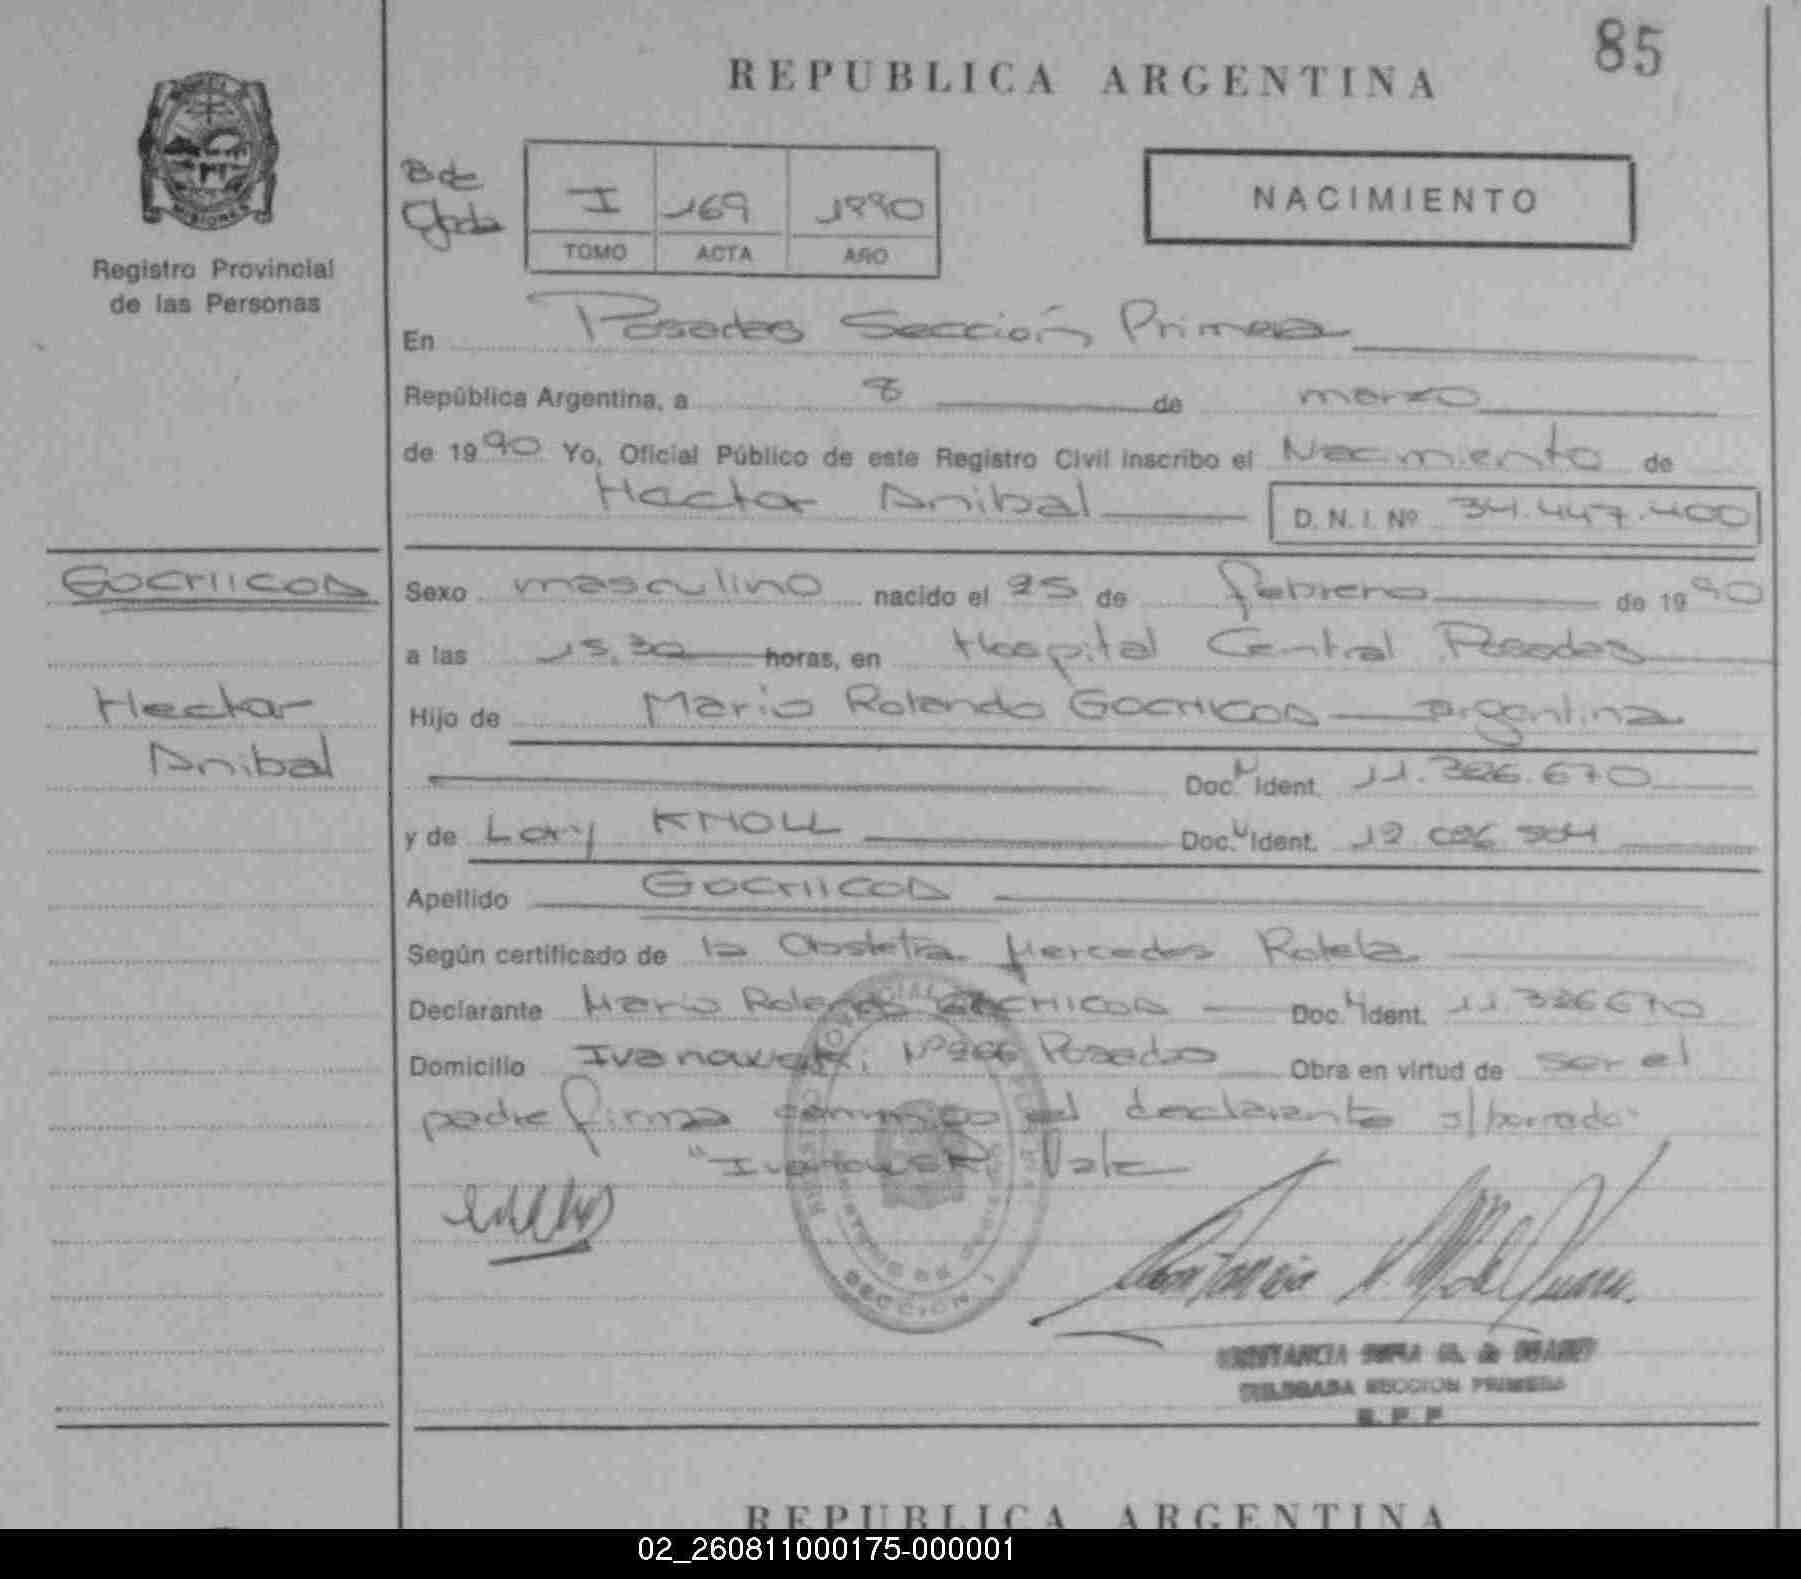 85
REPUBLICA ARGENTINA
MISIONES
Registro Provincial
de las Personas
I 169 1990
TOMO ACTA AÑO
NACIMIENTO
En Posadas Sección Primera
República Argentina, a 8 de marzo
de 1990 Yo, Oficial Público de este Registro Civil inscribo el Nacimiento de
Hector Anibal D.N.I. Nº 34.447.400
GOCHICOA
Hector
Anibal
Sexo masculino nacido el 25 de febrero de 1990
a las 15,30 horas, en Hospital Central Posadas
Hijo de Mario Rolando GOCHICOA argentina
Doc. Ident. 11.326.670
y de Lory KNOLL Doc. Ident.
Apellido GOCHICOA
Según certificado de la Obstetra Mercedes Rotela
Declarante Mario Rolando GOCHICOA Doc. Ident. 11.326670
Domicilio Ivanowski Nº266 Posadas Obra en virtud de ser el
padre firma conmigo el declarante s/borrado
"Ivanowski Vale
SECCION 1
CONSTANCIA SOFIA M. de
DELEGADA SECCION PRIMERA
R. P. P.
REPUBLICA ARGENTINA
02_260811000175-000001